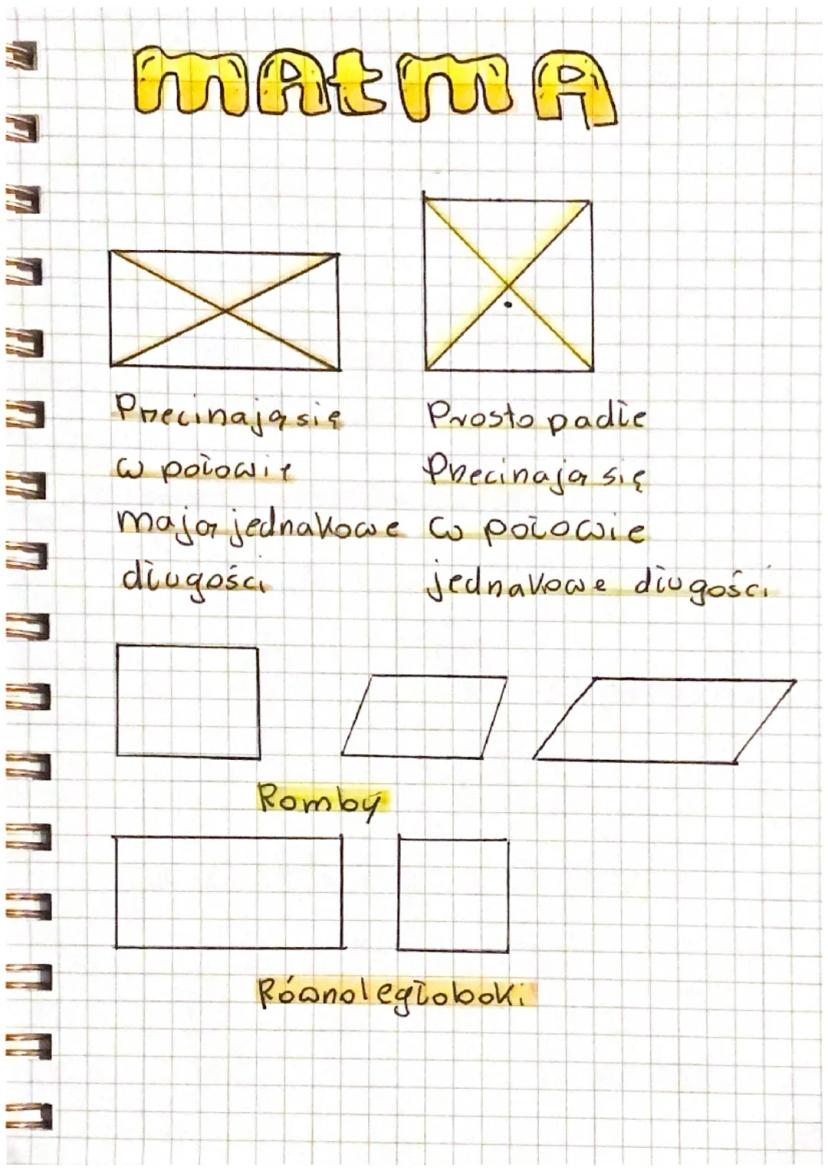 MAtMA
Przecinają się
w połowie
mają jednakowe
długości
Prostopadłe
Przecinają się
w połowie
jednakowe długości
Romby
Równoległoboki